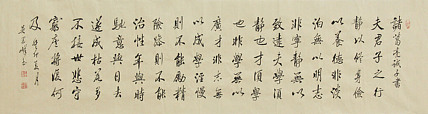 諸葛亮誡子書
夫君子之行
靜以修身儉
以養德非澹
泊無以明志
非寧靜無以
致遠夫學須
靜也才須學
也非學無以
廣才非志無
以成學淫慢
則不能勵精
險躁則不能
治性年與時
馳意與日去
遂成枯落多
不接世悲守
窮廬將復何
及